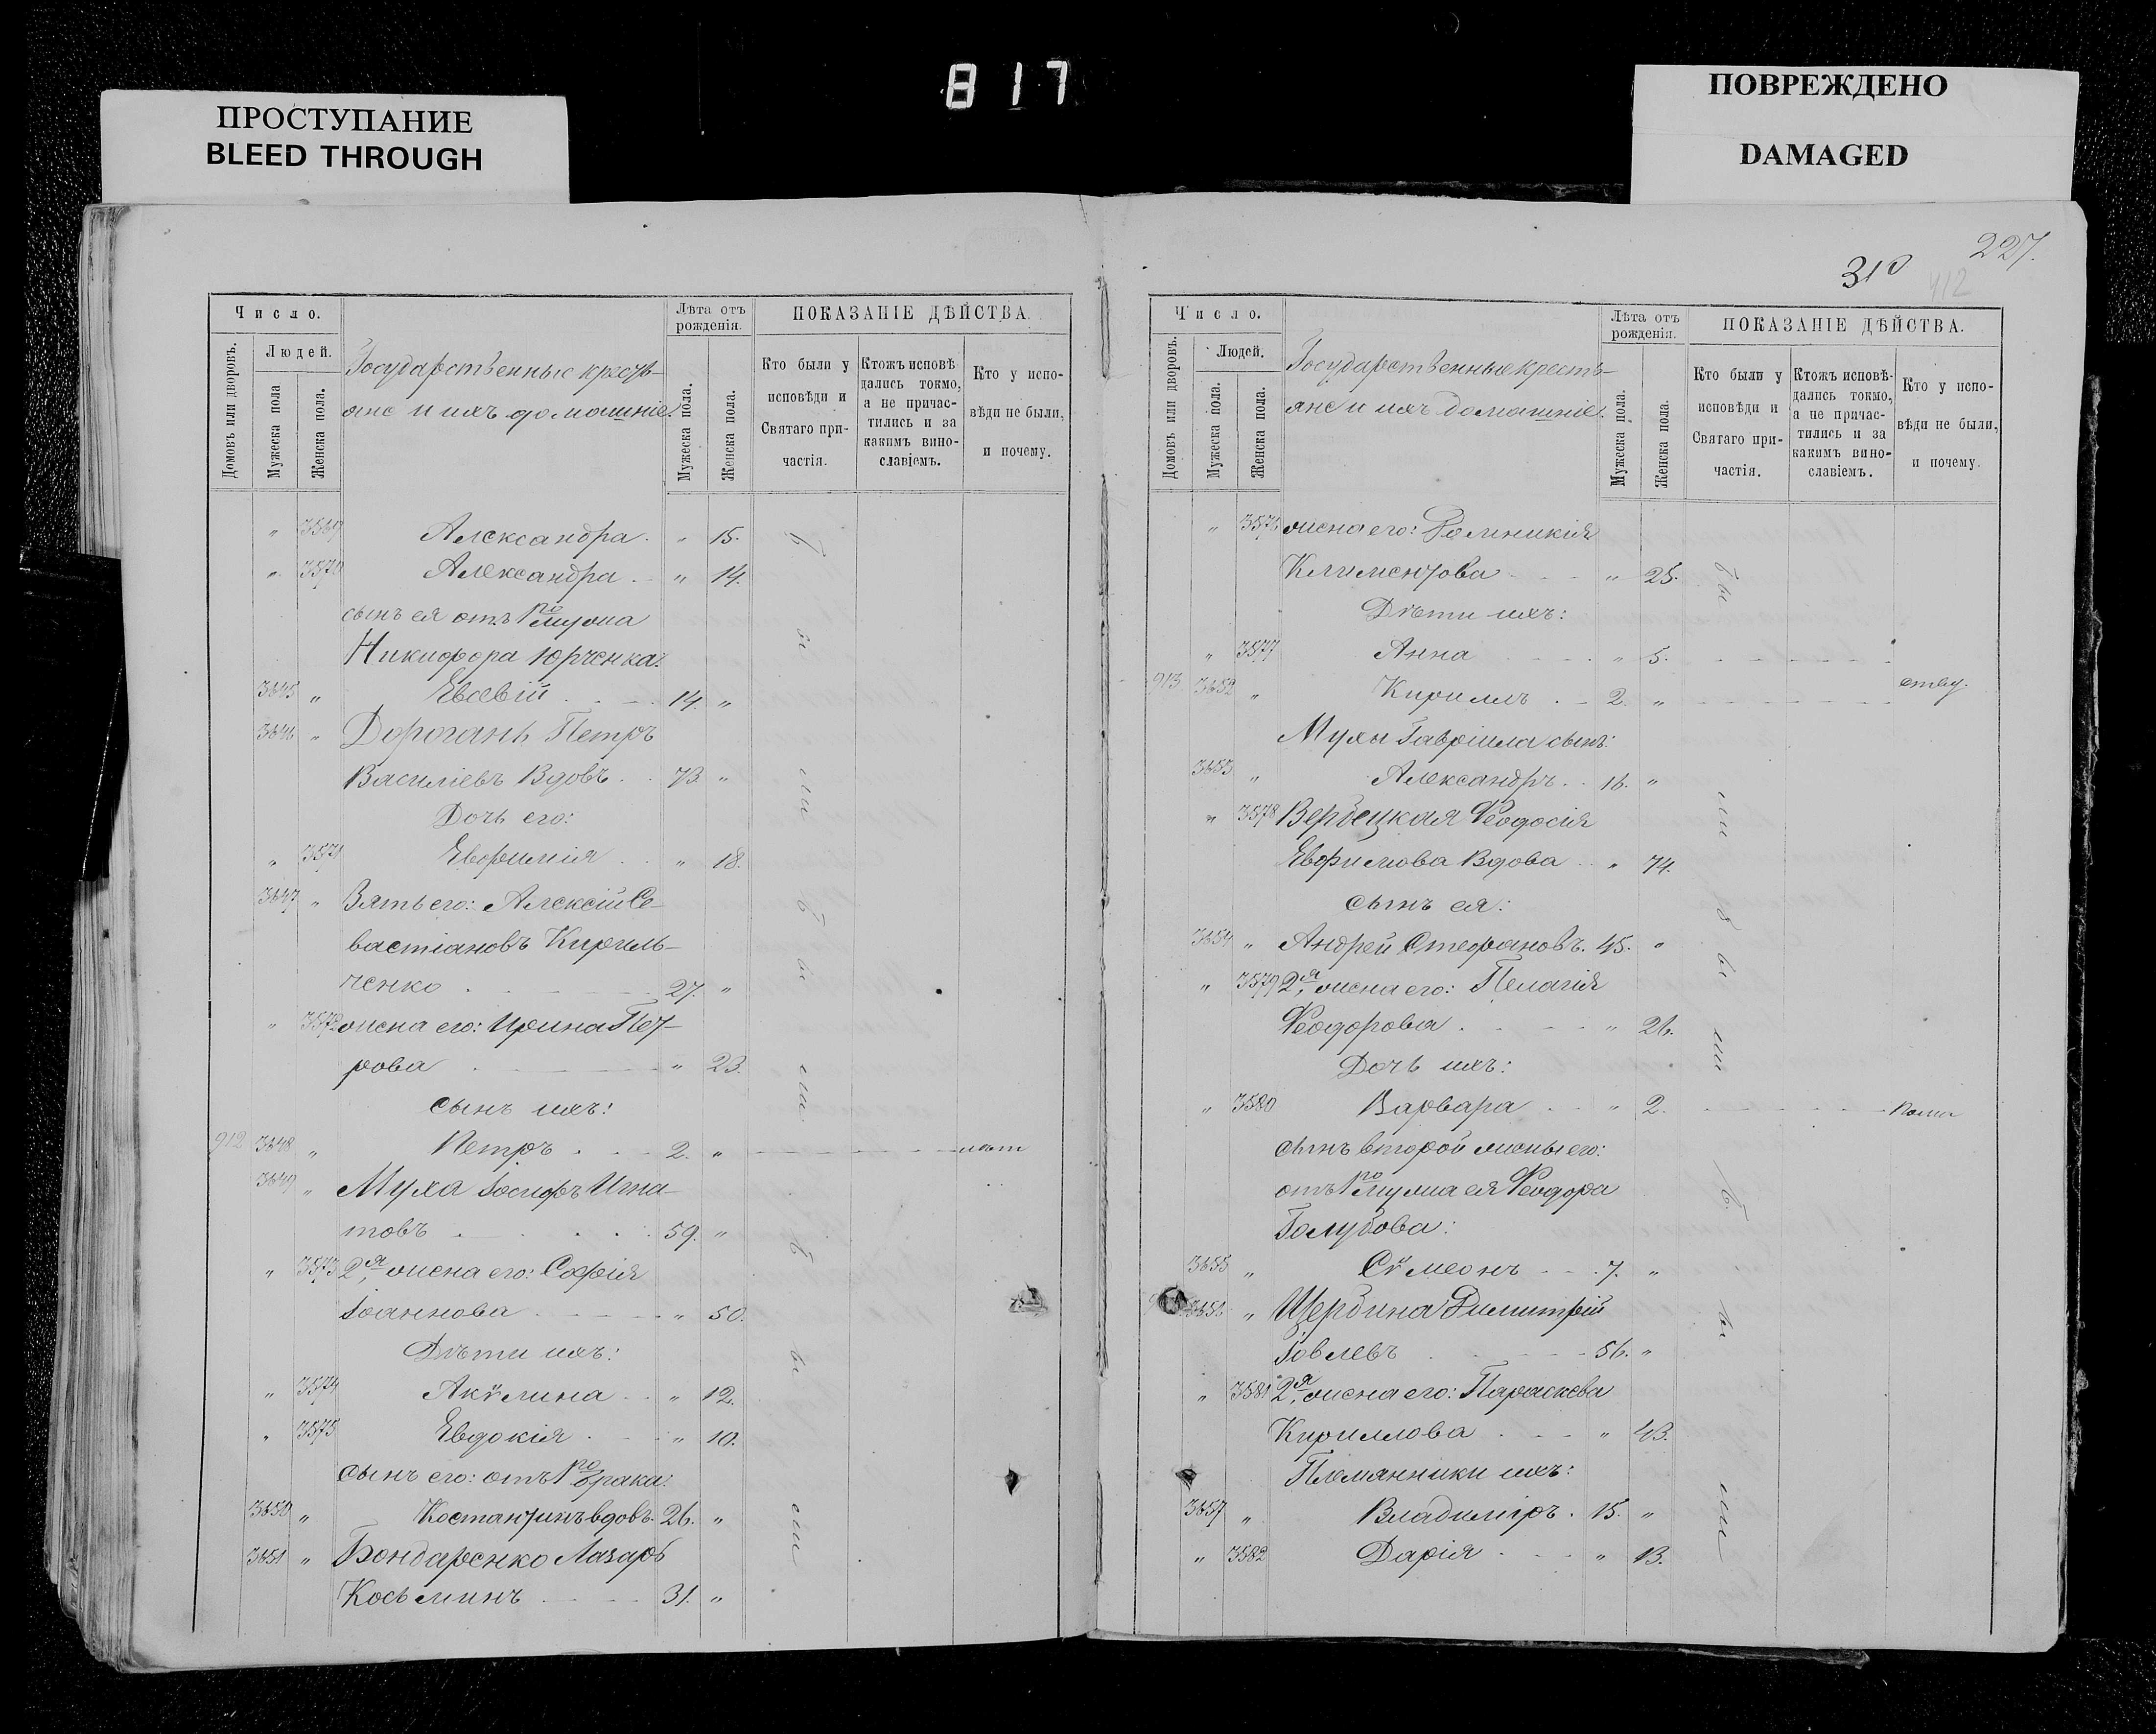 817
ПРОСТУПАНИЕ
BLEED THROUGH
ПОВРЕЖДЕНО
DAMAGED
Число.
Людей.
Домовъ или дворовъ.
Мужеска пола
Женска пола.
Государственные кресть-
яне и ихъ домашніе
Лѣта отъ
рожденія.
Мужеска пола.
Женска пола.
ПОКАЗАНІЕ ДѢЙСТВА.
Кто были у
исповѣди и
Святаго при-
частія.
Ктожъ исповѣ
дались токмо,
а не причас-
тились и за
какимъ вино-
славіемъ.
Кто у испо-
вѣди не были,
и почему.
" 3569 Александра. " 15.
" 3570 Александра. " 14.
сынъ ея отъ 1го мужа
Никифора Юрченка:
3645 " Евсевій 14. "
3646 " Дорогань Петръ
Василіевъ Вдовъ 73. "
Дочь его:
" 3571 Евфимія " 18.
3647 " Зять его: Алексій Се-
вастіановъ Кириль-
ченко 27. "
" 3572 жена его: Ирина Пет-
рова " 23.
сынъ ихъ:
912 3648 " Петръ 2. "
3649 " Муха Іосифъ Игна-
товъ 59. "
" 3573 2я, жена его: Софія
Іоаннова " 50.
Дѣти ихъ:
" 3574 Акѵлина " 12.
" 3575 Евдокія " 10.
сынъ его: отъ 1го брака:
3650 " Костантинъ вдовъ. 26. "
3651 " Бондаренко Лазарь
Косьминъ 31. "
были
были
были
310
227.
412
Число.
Людей.
Домовъ или дворовъ.
Мужеска пола.
Женска пола.
Государственные кресть-
яне и ихъ домашніе.
Лѣта отъ
рожденія.
Мужеска пола.
Женска пола.
ПОКАЗАНІЕ ДѢЙСТВА.
Кто были у
исповѣди и
Святаго при-
частія.
Ктожъ исповѣ-
дались токмо,
а не причас-
тились и за
какимъ вино-
славіемъ.
Кто у испо-
вѣди не были,
и почему.
" 3576 жена его: Домникія
Климентова " 25.
Дѣти ихъ:
" 3577 Анна " 5.
913 3652 " Кириллъ 2. "
Мухи Гавріила сынъ:
3653 " Александръ 16. "
" 3578 Вербецкая Ѳеодосія
Евфимова Вдова " 74.
сынъ ея:
3654 " Андрей Стефановъ. 45. "
" 3579 2я, жена его: Пелагія
Ѳеодорова " 26.
Дочь ихъ:
" 3580 Варвара " 2.
сынъ второй жены его:
отъ 1го мужа ея Ѳеодора
Голубова:
3655 " Сѵмеонъ 7. "
3656 " Щербина Димитрій
Іовлевъ 56. "
" 3581 2я, жена его: Параскева
Кириллова " 43.
Племянники ихъ:
3657 " Владиміръ. 15. "
" 3582 Дарія " 13.
были
были
были